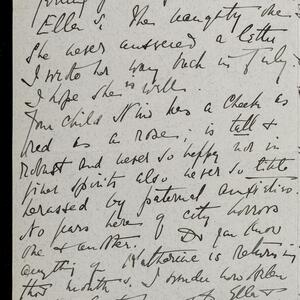 Ella is the naughty one
She never answered a letter
I wrote her way back in July.
I hope she is well.
Your child Nina has a cheek as
red as a rose: is tall &
robust and never so happy nor in
finer spirits also never so little
harassed by paternal anxieties.
No pars here of city horrors
one & another. Do you know
anything of Katherine is return in
that month. I wonder
of Ella &